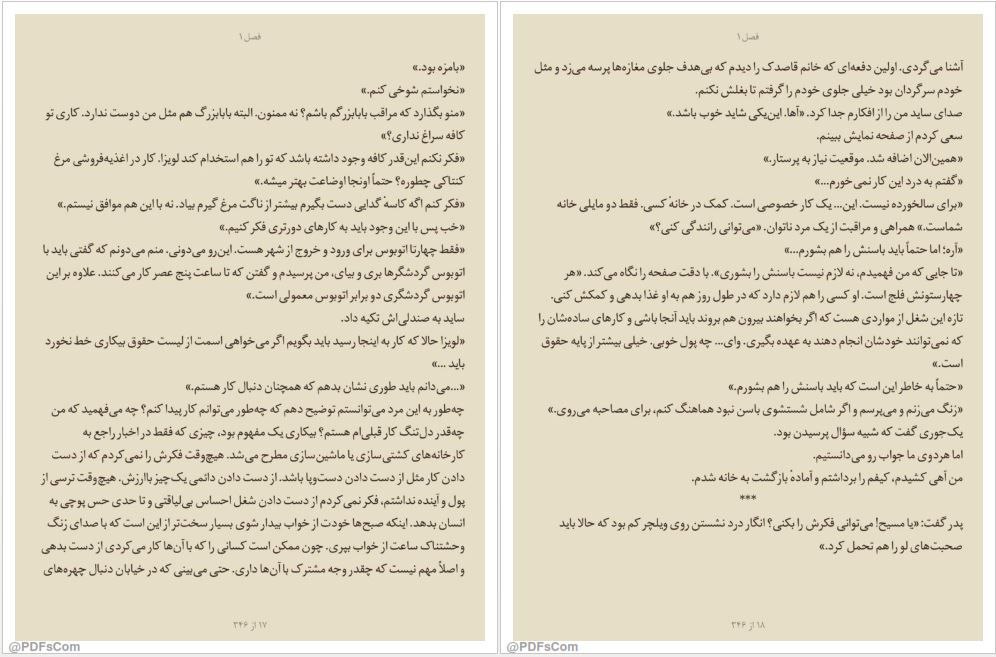 فصل ۱
«بامزه بود.»
«نخواستم شوخی کنم.»
«منو بگذارد که مراقب بابابزرگم باشم؟ نه ممنون. البته بابابزرگ هم مثل من دوست ندارد. کاری تو
کافه سراغ نداری؟»
«فکر نکنم این‌قدر کافه وجود داشته باشد که تو را هم استخدام کند لویزا. کار در اغذیه‌فروشی مرغ
کنتاکی چطوره؟ حتماً اونجا اوضاعت بهتر میشه.»
«فکر کنم اگه کاسهٔ گدایی دست بگیرم بیشتر از ناگت مرغ گیرم بیاد. نه با این هم موافق نیستم.»
«خب پس با این وجود باید به کارهای دورتری فکر کنیم.»
«فقط چهارتا اتوبوس برای ورود و خروج از شهر هست. این‌رو می‌دونی. منم می‌دونم که گفتی باید با
اتوبوس گردشگرها بری و بیای، من پرسیدم و گفتن که تا ساعت پنج عصر کار می‌کنند. علاوه بر این
اتوبوس گردشگری دو برابر اتوبوس معمولی است.»
ساید به صندلی‌اش تکیه داد.
«لویزا حالا که کار به اینجا رسید باید بگویم اگر می‌خواهی اسمت از لیست حقوق بیکاری خط نخورد
باید ...»
«...می‌دانم باید طوری نشان بدهم که همچنان دنبال کار هستم.»
چه‌طور به این مرد می‌توانستم توضیح دهم که چه‌طور می‌توانم کار پیدا کنم؟ چه می‌فهمید که من
چه‌قدر دل‌تنگ کار قبلی‌ام هستم؟ بیکاری یک مفهوم بود، چیزی که فقط در اخبار راجع به
کارخانه‌های کشتی‌سازی یا ماشین‌سازی مطرح می‌شد. هیچ‌وقت فکرش را نمی‌کردم که از دست
دادن کار مثل از دست دادن دست‌وپا باشد. از دست دادن دائمی یک‌چیز باارزش. هیچ‌وقت ترسی از
پول و آینده نداشتم، فکر نمی‌کردم از دست دادن شغل احساس بی‌لیاقتی و تا حدی حس پوچی به
انسان بدهد. اینکه صبح‌ها خودت از خواب بیدار شوی بسیار سخت‌تر از این است که با صدای زنگ
وحشتناک ساعت از خواب بپری. چون ممکن است کسانی را که با آن‌ها کار می‌کردی از دست بدهی
و اصلاً مهم نیست که چقدر وجه مشترک با آن‌ها داری. حتی می‌بینی که در خیابان دنبال چهره‌های
۱۷ از ۳۴۶
@PDFsCom
فصل ۱
آشنا می‌گردی. اولین دفعه‌ای که خانم قاصدک را دیدم که بی‌هدف جلوی مغازه‌ها پرسه می‌زد و مثل
خودم سرگردان بود خیلی جلوی خودم را گرفتم تا بغلش نکنم.
صدای ساید من را از افکارم جدا کرد. «آها. این‌یکی شاید خوب باشد.»
سعی کردم از صفحه نمایش ببینم.
«همین‌الان اضافه شد. موقعیت نیاز به پرستار.»
«گفتم به درد این کار نمی‌خورم...»
«برای سالخورده نیست. این... یک کار خصوصی است. کمک در خانهٔ کسی. فقط دو مایلی خانه
شماست.» همراهی و مراقبت از یک مرد ناتوان. «می‌توانی رانندگی کنی؟»
«آره؛ اما حتماً باید باسنش را هم بشورم...»
«تا جایی که من فهمیدم، نه لازم نیست باسنش را بشوری». با دقت صفحه را نگاه می‌کند. «هر
چهارستونش فلج است. او کسی را هم لازم دارد که در طول روز هم به او غذا بدهی و کمکش کنی.
تازه این شغل از مواردی هست که اگر بخواهند بیرون هم بروند باید آنجا باشی و کارهای ساده‌شان را
که نمی‌توانند خودشان انجام دهند به عهده بگیری. وای... چه پول خوبی. خیلی بیشتر از پایه حقوق
است.»
«حتماً به خاطر این است که باید باسنش را هم بشورم.»
«زنگ می‌زنم و می‌پرسم و اگر شامل شستشوی باسن نبود هماهنگ کنم، برای مصاحبه می‌روی.»
یک‌جوری گفت که شبیه سؤال پرسیدن بود.
اما هردوی ما جواب رو می‌دانستیم.
من آهی کشیدم، کیفم را برداشتم و آمادهٔ بازگشت به خانه شدم.
***
پدر گفت: «یا مسیح! می‌توانی فکرش را بکنی؟ انگار درد نشستن روی ویلچر کم بود که حالا باید
صحبت‌های لو را هم تحمل کرد.»
۱۸ از ۳۴۶
@PDFsCom